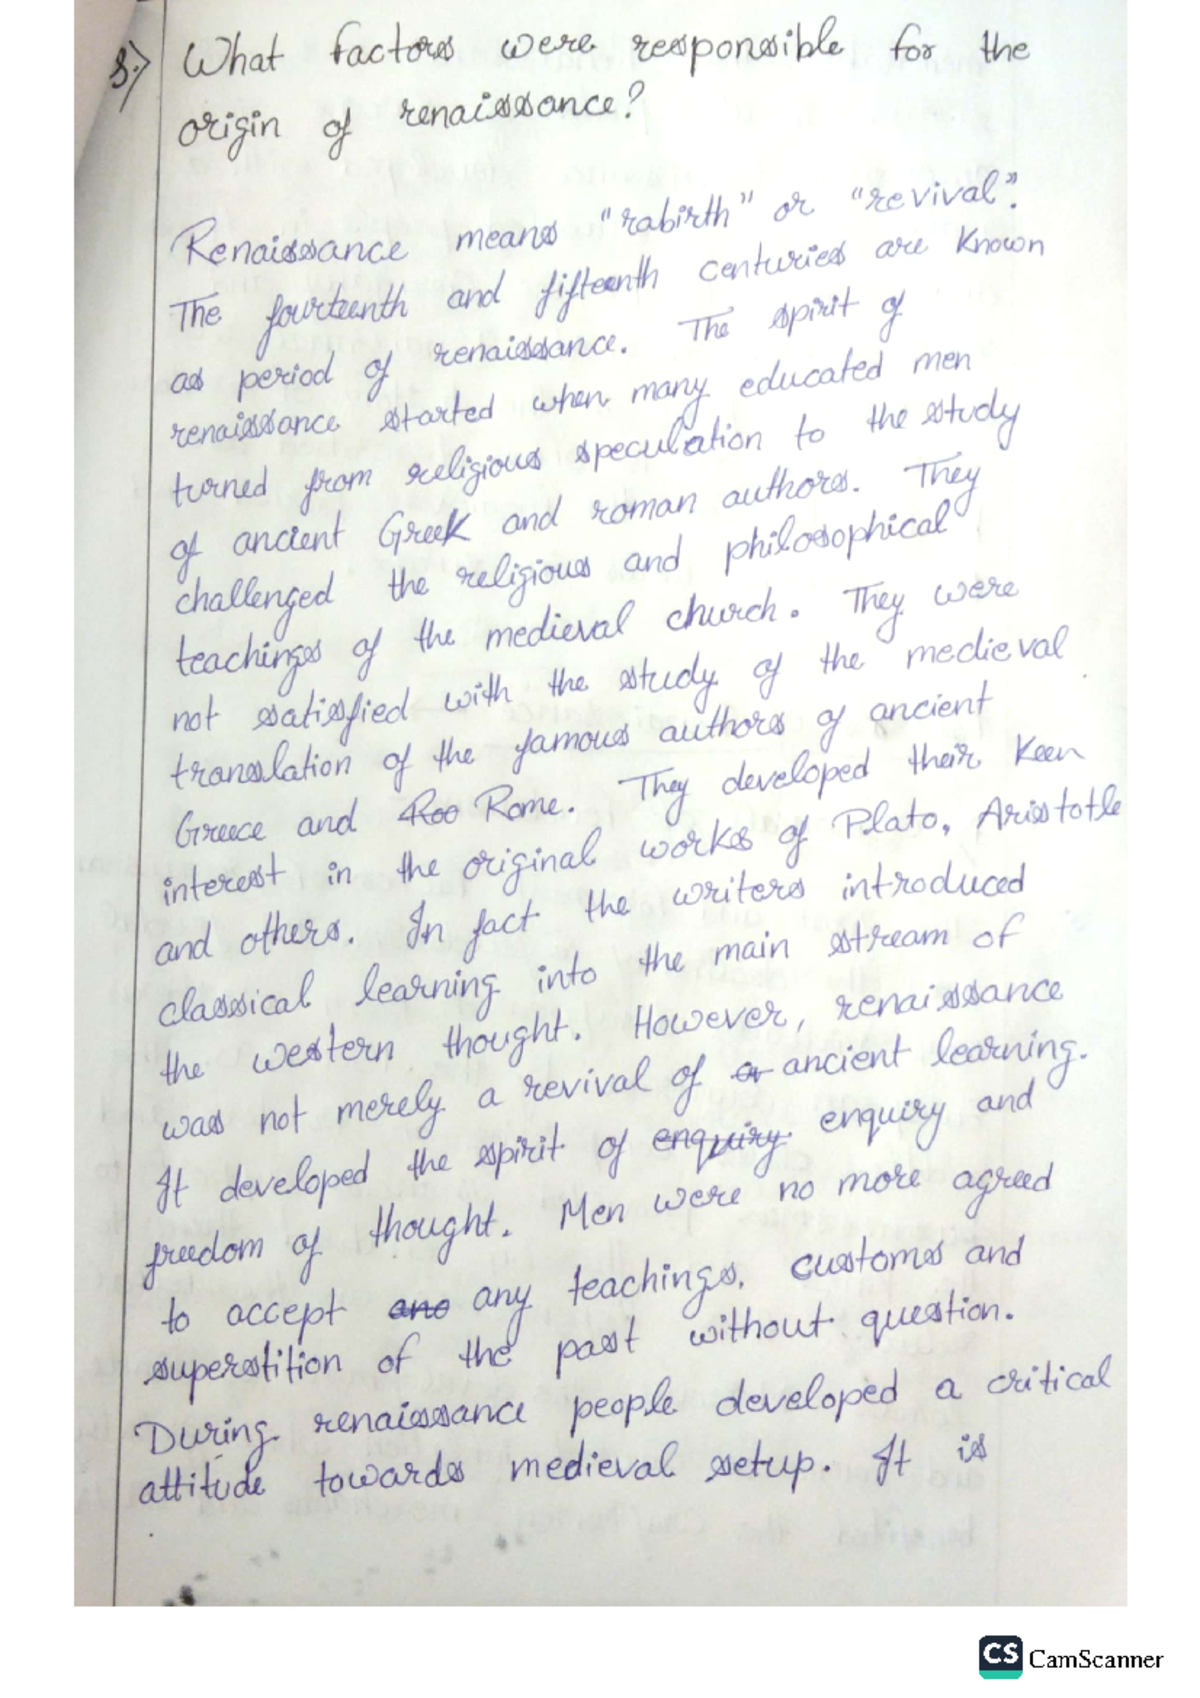 3.) What factors were responsible for the
origin of renaissance?
Renaissance means "rabirth" or "revival".
The fourteenth and fifteenth centuries are known
as period of renaissance. The spirit of
renaissance started when many educated men
turned from religious speculation to the study
of ancient Greek and roman authors. They
challenged the religious and philosophical
teachings of the medieval church. They were
not satisfied with the study of the medieval
translation of the famous authors of ancient
Greece and Roo Rome. They developed their keen
interest in the original works of Plato, Aristotle
and others. In fact the writers introduced
classical learning into the main stream of
the western thought. However, renaissance
was not merely a revival of ar ancient learning.
It developed the spirit of enquiry enquiry and
freedom of thought. Men were no more agreed
to accept ano any teachings, customs and
superstition of the past without question.
During renaissance people developed a critical
attitude towards medieval setup. It is
CS CamScanner